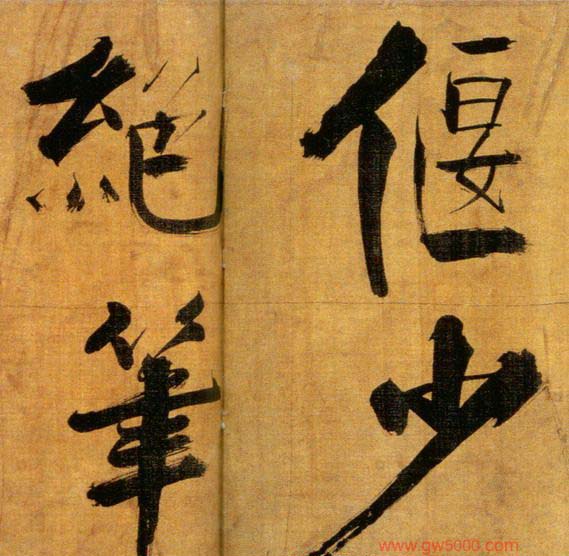 偃少
絕筆
www.gw5000.com